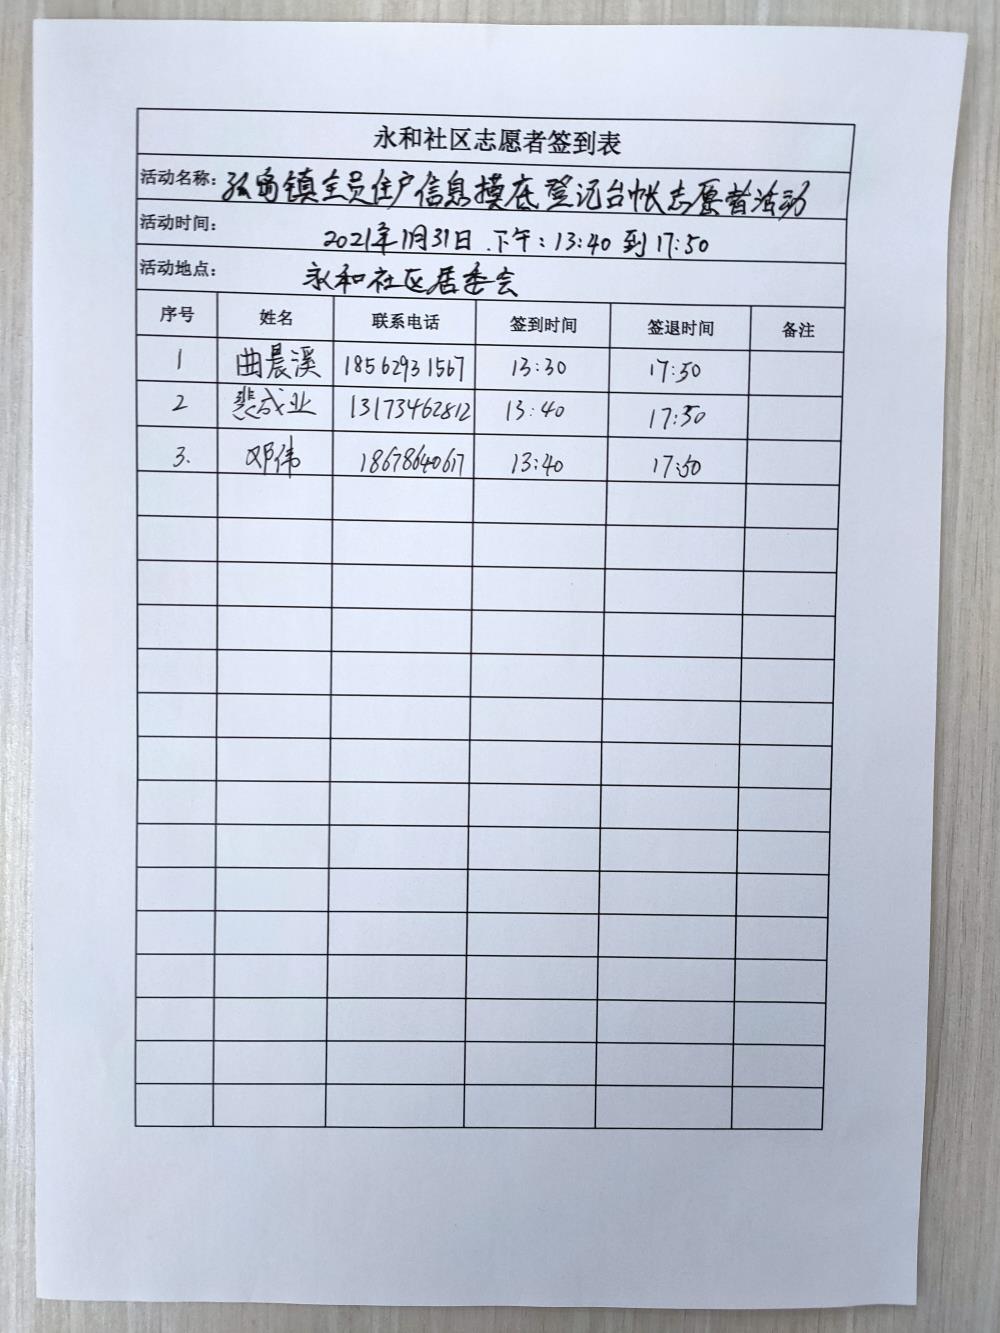 永和社区志愿者签到表
活动名称：孤岛镇全员住户信息摸底登记台帐志愿者活动
活动时间： 2021年11月31日 下午：13:40 到 17:50
活动地点： 永和社区居委会
序号 姓名 联系电话 签到时间 签退时间 备注
1 曲晨溪 18562931567 13:30 17:50
2 裴成业 13173462812 13:40 17:50
3. 邓伟 18678640617 13:40 17:50